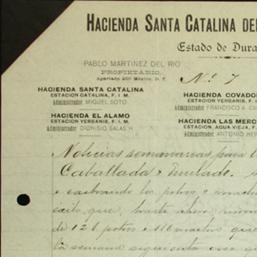 HACIENDA SANTA CATALINA DEL
Estado de Dura
PABLO MARTINEZ DEL RIO
PROPIETARIO.
Apartado 297 México, D. F.
Nº 7
HACIENDA SANTA CATALINA
ESTACION CATALINA, F. I. M.
Administrador MIGUEL SOTO
HACIENDA COVADO
ESTACION YERBANIS, F.
Administrador FRANCISCO
HACIENDA EL ALAMO
ESTACION YERBANIS, F. I. M.
Administrador DIONISIO SALAS H.
HACIENDA LAS MERC
ESTACION, AGUA VIEJA, F.
Administrador ANTONIO HER
Noticias semanarias, para l
Caballada y mulada.
castrando los potros y
que, hasta ahora
de 126 potros y 110 machos que
la semana siguiente creo